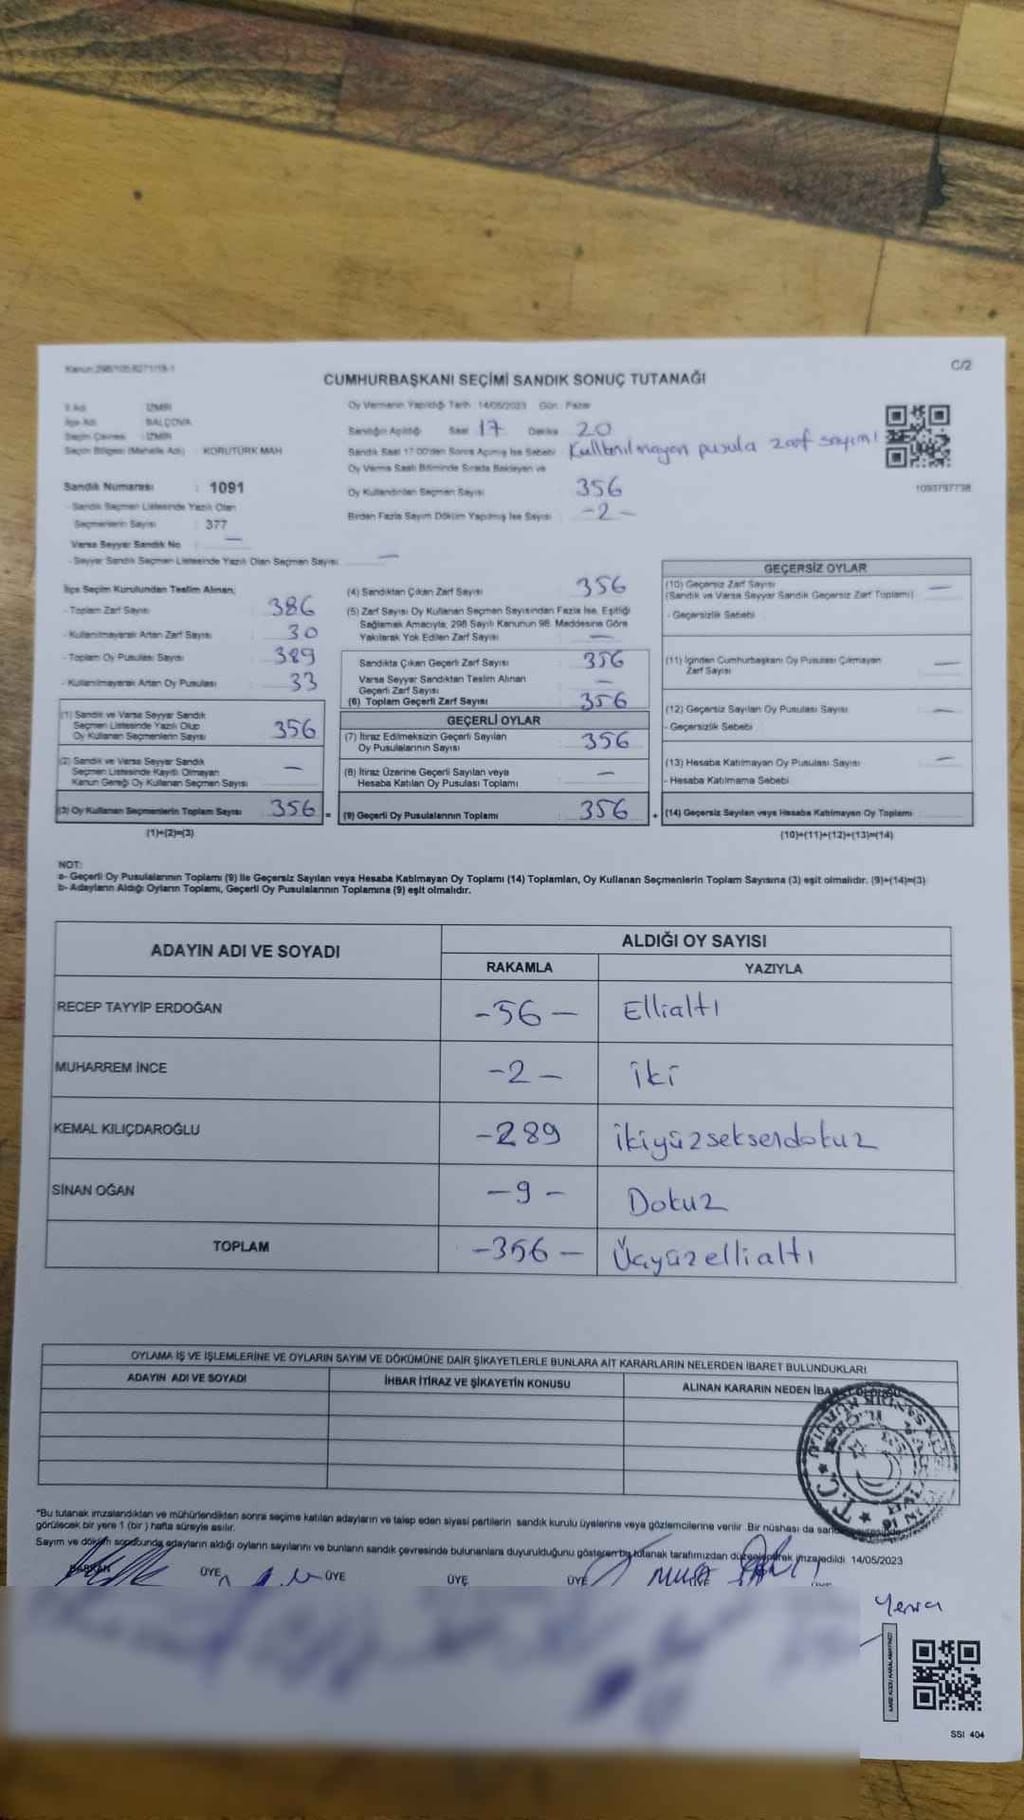 C/2
CUMHURBAŞKANI SEÇİMİ SANDIK SONUÇ TUTANAĞI
İli Adı İZMİR
İlçe Adı BALÇOVA
Seçim Çevresi : İZMİR
Seçim Bölgesi (Mahalle Adı) KORUTÜRK MAH
Sandık Numarası : 1091
- Sandık Seçmen Listesinde Yazılı Olan
Seçmenlerin Sayısı : 377
Varsa Seyyar Sandık No —
- Seyyar Sandık Seçmen Listesinde Yazılı Olan Seçmen Sayısı —
Oy Vermenin Yapıldığı Tarih 14/05/2023 Gün: Pazar
Sandığın Açıldığı Saat 17 Dakika 20
Sandık Saat 17:00'den Sonra Açılmış İse Sebebi Kullanılmayan pusula zarf sayımı
Oy Verme Saati Bitiminde Sırada Bekleyen ve
Oy Kullandırılan Seçmen Sayısı 356
Birden Fazla Sayım Döküm Yapılmış İse Sayısı -2-
1093797738
İlçe Seçim Kurulundan Teslim Alınan;
- Toplam Zarf Sayısı 386
- Kullanılmayarak Artan Zarf Sayısı 30
- Toplam Oy Pusulası Sayısı 389
- Kullanılmayarak Artan Oy Pusulası 33
(1) Sandık ve Varsa Seyyar Sandık
Seçmen Listesinde Yazılı Olup
Oy Kullanan Seçmenlerin Sayısı 356
(2) Sandık ve Varsa Seyyar Sandık
Seçmen Listesinde Kayıtlı Olmayan
Kanun Gereği Oy Kullanan Seçmen Sayısı —
(3) Oy Kullanan Seçmenlerin Toplam Sayısı 356 =
(1)+(2)=(3)
(4) Sandıktan Çıkan Zarf Sayısı 356
(5) Zarf Sayısı Oy Kullanan Seçmen Sayısından Fazla İse, Eşitliği
Sağlamak Amacıyla, 298 Sayılı Kanunun 98. Maddesine Göre
Yakılarak Yok Edilen Zarf Sayısı —
Sandıkta Çıkan Geçerli Zarf Sayısı 356
Varsa Seyyar Sandıktan Teslim Alınan
Geçerli Zarf Sayısı —
(6) Toplam Geçerli Zarf Sayısı 356
GEÇERLİ OYLAR
(7) İtiraz Edilmeksizin Geçerli Sayılan
Oy Pusulalarının Sayısı 356
(8) İtiraz Üzerine Geçerli Sayılan veya
Hesaba Katılan Oy Pusulası Toplamı —
(9) Geçerli Oy Pusulalarının Toplamı 356 +
GEÇERSİZ OYLAR
(10) Geçersiz Zarf Sayısı
(Sandık ve Varsa Seyyar Sandık Geçersiz Zarf Toplamı) —
- Geçersizlik Sebebi
(11) İçinden Cumhurbaşkanı Oy Pusulası Çıkmayan
Zarf Sayısı —
(12) Geçersiz Sayılan Oy Pusulası Sayısı —
- Geçersizlik Sebebi
(13) Hesaba Katılmayan Oy Pusulası Sayısı —
- Hesaba Katılmama Sebebi
(14) Geçersiz Sayılan veya Hesaba Katılmayan Oy Toplamı
(10)+(11)+(12)+(13)=(14)
NOT:
a- Geçerli Oy Pusulalarının Toplamı (9) ile Geçersiz Sayılan veya Hesaba Katılmayan Oy Toplamı (14) Toplamları, Oy Kullanan Seçmenlerin Toplam Sayısına (3) eşit olmalıdır. (9)+(14)=(3)
b- Adayların Aldığı Oyların Toplamı, Geçerli Oy Pusulalarının Toplamına (9) eşit olmalıdır.
ADAYIN ADI VE SOYADI ALDIĞI OY SAYISI
RAKAMLA YAZIYLA
RECEP TAYYİP ERDOĞAN -56- Ellialtı
MUHARREM İNCE -2- iki
KEMAL KILIÇDAROĞLU -289 ikiyüzseksendokuz
SİNAN OĞAN -9- Dokuz
TOPLAM -356- Üçyüzellialtı
OYLAMA İŞ VE İŞLEMLERİNE VE OYLARIN SAYIM VE DÖKÜMÜNE DAİR ŞİKAYETLERLE BUNLARA AİT KARARLARIN NELERDEN İBARET BULUNDUKLARI
ADAYIN ADI VE SOYADI İHBAR İTİRAZ VE ŞİKAYETİN KONUSU ALINAN KARARIN NEDEN İBARET OLDUĞU
*Bu tutanak imzalandıktan ve mühürlendikten sonra seçime katılan adayların ve talep eden siyasi partilerin sandık kurulu üyelerine veya gözlemcilerine verilir. Bir nüshası da
görülecek bir yere 1 (bir) hafta süreyle asılır.
Sayım ve döküm sonucunda adayların aldığı oyların sayılarını ve bunların sandık çevresinde bulunanlara duyurulduğunu gösteren bu tutanak tarafımızdan düzenlenerek imzaedildi. 14/05/2023
BAŞKAN ÜYE ÜYE ÜYE ÜYE
SSI 404